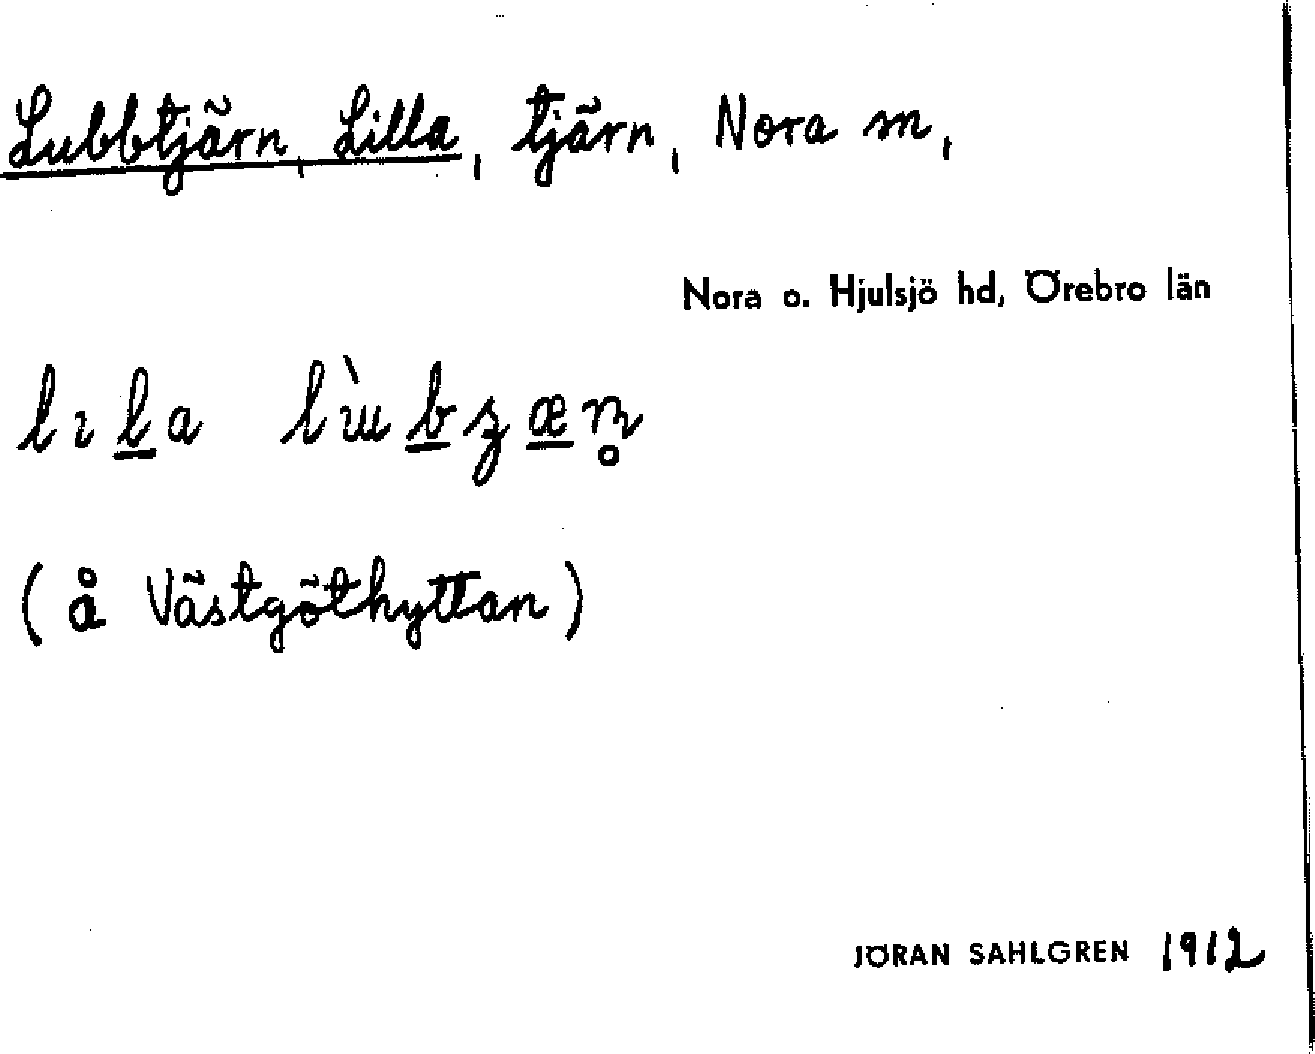 Lubbtjärn, Lilla, tjärn, Nora m,
Nora o. Hjulsjö hd, Örebro län
(å Västgöthyttan)
JÖRAN SAHLGREN 1912